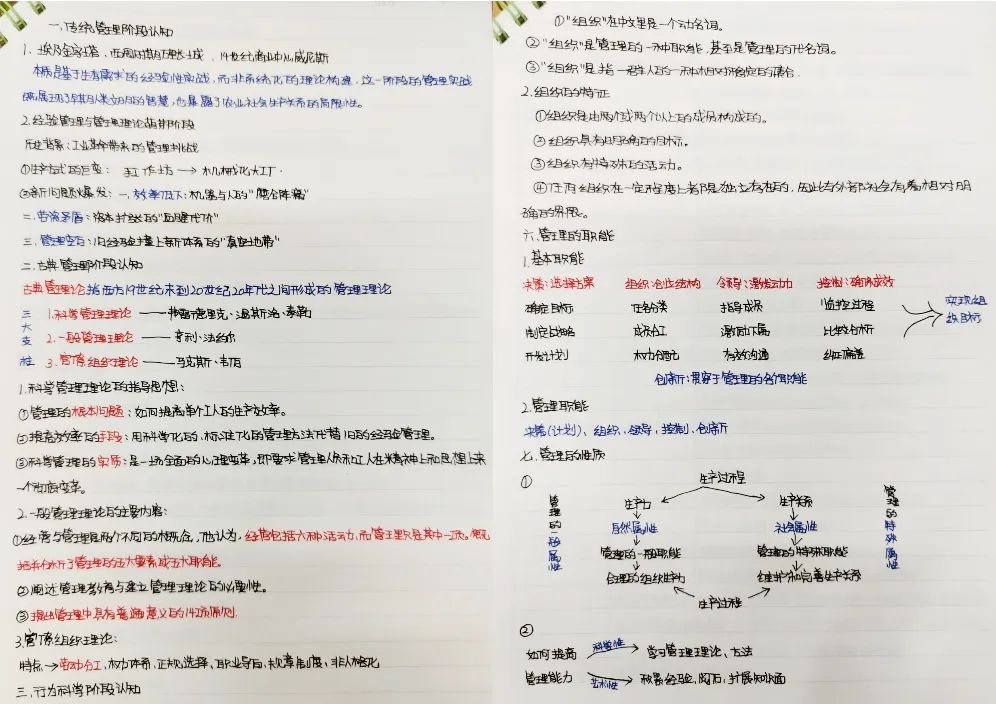 一、传统管理阶段认知
1. 埃及金字塔、西周时期万里长城、19世纪商业中心威尼斯
本质是基于生存需求的经验性实战，而非系统化的理论构建，这一阶段的管理实践
既展现了早期人类文明的智慧，也暴露了农业社会生产关系的局限性。
2. 经验管理与管理理论萌期阶段
历史背景：工业革命带来的管理挑战
①生产方式的巨变： 手工作坊 → 机械化大工厂.
②新问题爆发：一、效率低下：机器与人的“磨合阵痛”
二、劳资矛盾：资本扩张的“血腥代价”
三、管理空白：旧经验撞上新体系的“真空地带”
二、古典管理阶段认知
古典管理理论 指西方19世纪末到20世纪20年代之间形成的管理理论
三大支柱
1. 科学管理理论 —— 弗雷德里克、温斯洛、泰勒
2. 一般管理理论 —— 亨利、法约尔
3. 官僚组织理论 —— 马克斯、韦伯
1. 科学管理理论的指导思想：
①管理的根本问题：如何提高单个工人的生产效率。
②提高效率的手段：用科学化的、标准化的管理方法代替旧的经验管理。
③科学管理的实质：是一场全面的心理变革，即要求管理人员和工人在精神上和思想上来
一个彻底变革。
2. 一般管理理论的主要内容：
①经营与管理是两个不同的概念，他认为，经营包括六种活动，而管理只是其中一项。概
括并分析了管理的五大要素或五大职能。
②阐述管理教育与建立管理理论的必要性。
③提出管理中具有普遍意义的14项原则.
3. 官僚组织理论：
特点 → 劳动分工，权力体系，正规选择、职业导向、规章制度、非人格化
三、行为科学阶段认知
①“组织”在中文里是一个动名词。
②“组织”是管理的一种职能，甚至是管理的代名词。
③“组织”是指一群人的一种相对稳定的集合.
2. 组织的特征
①组织是由两个或两个以上的成员构成的。
②组织具有明确的目标。
③组织有特殊的活动。
④任何组织在一定程度上都是独立存在的，因此与外部社会有着相对明
确的界限。
六、管理的职能
1. 基本职能
决策：选择方案 组织：创业结构 领导：激发动力 控制：确保成效
确定目标 任务分类 指导成员 监控过程
制定战略 成员分工 激励下属 比较分析
开发计划 权力分配 有效沟通 纠正偏差
实现组
织目标
创新：贯穿于管理的各个职能
2. 管理职能
决策(计划)、组织，领导，控制，创新
七、管理的性质
①
生产过程
管理的一般属性
生产力 生产关系
自然属性 社会属性
管理的一般职能 管理的特殊职能
合理的组织生产力 维护和完善生产关系
生产过程
管理的特殊属性
②
如何提高 科学性 学习管理理论、方法
管理能力 艺术性 积累经验，阅历，扩展知识面